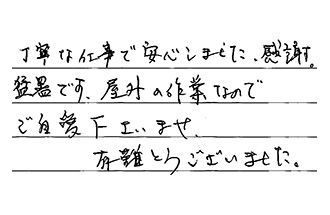 丁寧な仕事で安心しました、感謝。
猛暑です、屋外の作業なので
ご自愛下さいませ、
有難とうございました。